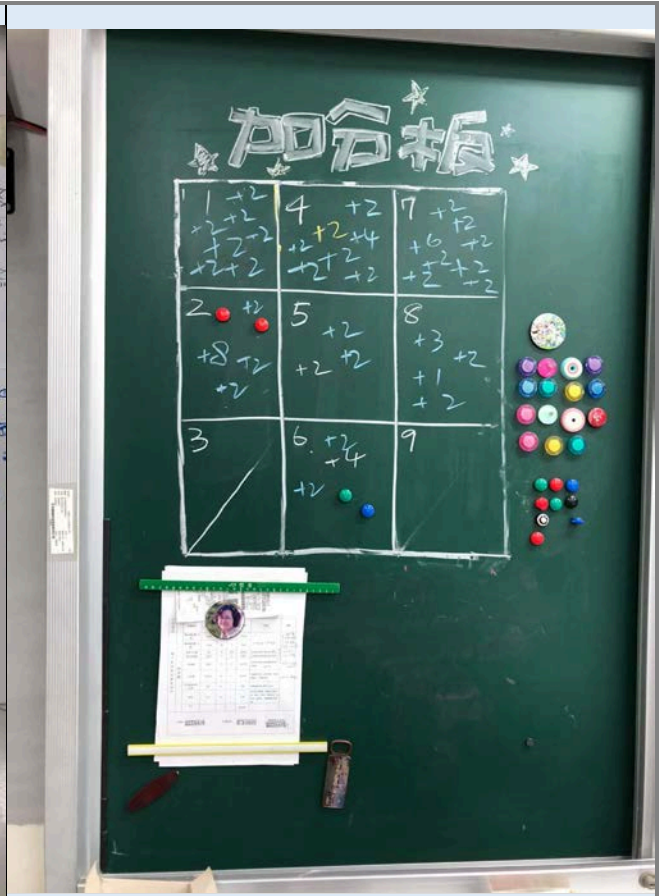 加分板
1 +2
+2
+2 +2
+2
+2 +2
4 +2
+2 +4
+2 +2
+2 +2
7 +2
+2
+6 +2
+2 +2
+2 +2
2 +2
+8 +2
+2
5
+2
+2 +2
8
+3
+2
+1
+2
3
6. +2
+4
+2
9